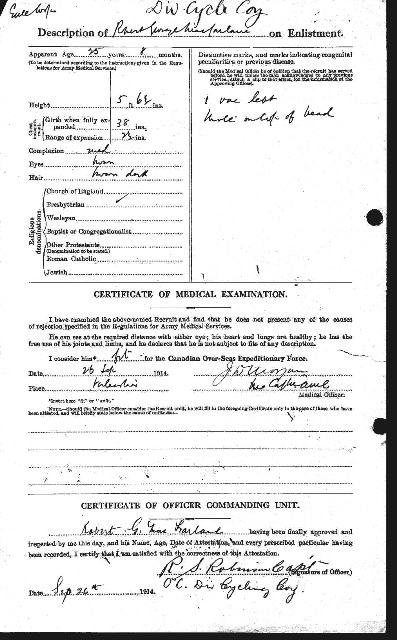 Div Cycle Coy
Description of Robert George MacFarlane on Enlistment.
Apparent Age 25 years 8 months.
(To be determined according to the instructions given in the Regulations for Army Medical Services.)
Height 5 ft. 6½ ins.
Chest measurement
Girth when fully expanded 38 ins.
Range of expansion ins.
Complexion med
Eyes brown
Hair brown dark
Religious denominations
Church of England
Presbyterian ✓
Wesleyan
Baptist or Congregationalist
Other Protestants
(Denomination to be stated.)
Roman Catholic
Jewish
Distinctive marks, and marks indicating congenital peculiarities or previous disease.
(Should the Medical Officer be of opinion that the recruit has served before, he will, unless the man acknowledges to any previous service, attach a slip to that effect, for the information of the Approving Officer.)
1 vac left
on top of head
CERTIFICATE OF MEDICAL EXAMINATION.
I have examined the above-named Recruit and find that he does not present any of the causes
of rejection specified in the Regulations for Army Medical Services.
He can see at the required distance with either eye; his heart and lungs are healthy; he has the
free use of his joints and limbs, and he declares that he is not subject to fits of any description.
I consider him* fit for the Canadian Over-Seas Expeditionary Force.
Date 26 Sep 1914.
Place Valcartier
Medical Officer.
*Insert here "fit" or "unfit."
NOTE.—Should the Medical Officer consider the Recruit unfit, he will fill in the foregoing Certificate only in the case of those who have
been attested, and will briefly state below the cause of unfitness:—
CERTIFICATE OF OFFICER COMMANDING UNIT.
Robert G. Mac Farlane having been finally approved and
inspected by me this day, and his Name, Age, Date of Attestation, and every prescribed particular having
been recorded, I certify that I am satisfied with the correctness of this Attestation.
R. S. Robinson Capt
(Signature of Officer)
O.C. Div Cycling Coy.
Date Sep 26th 1914.